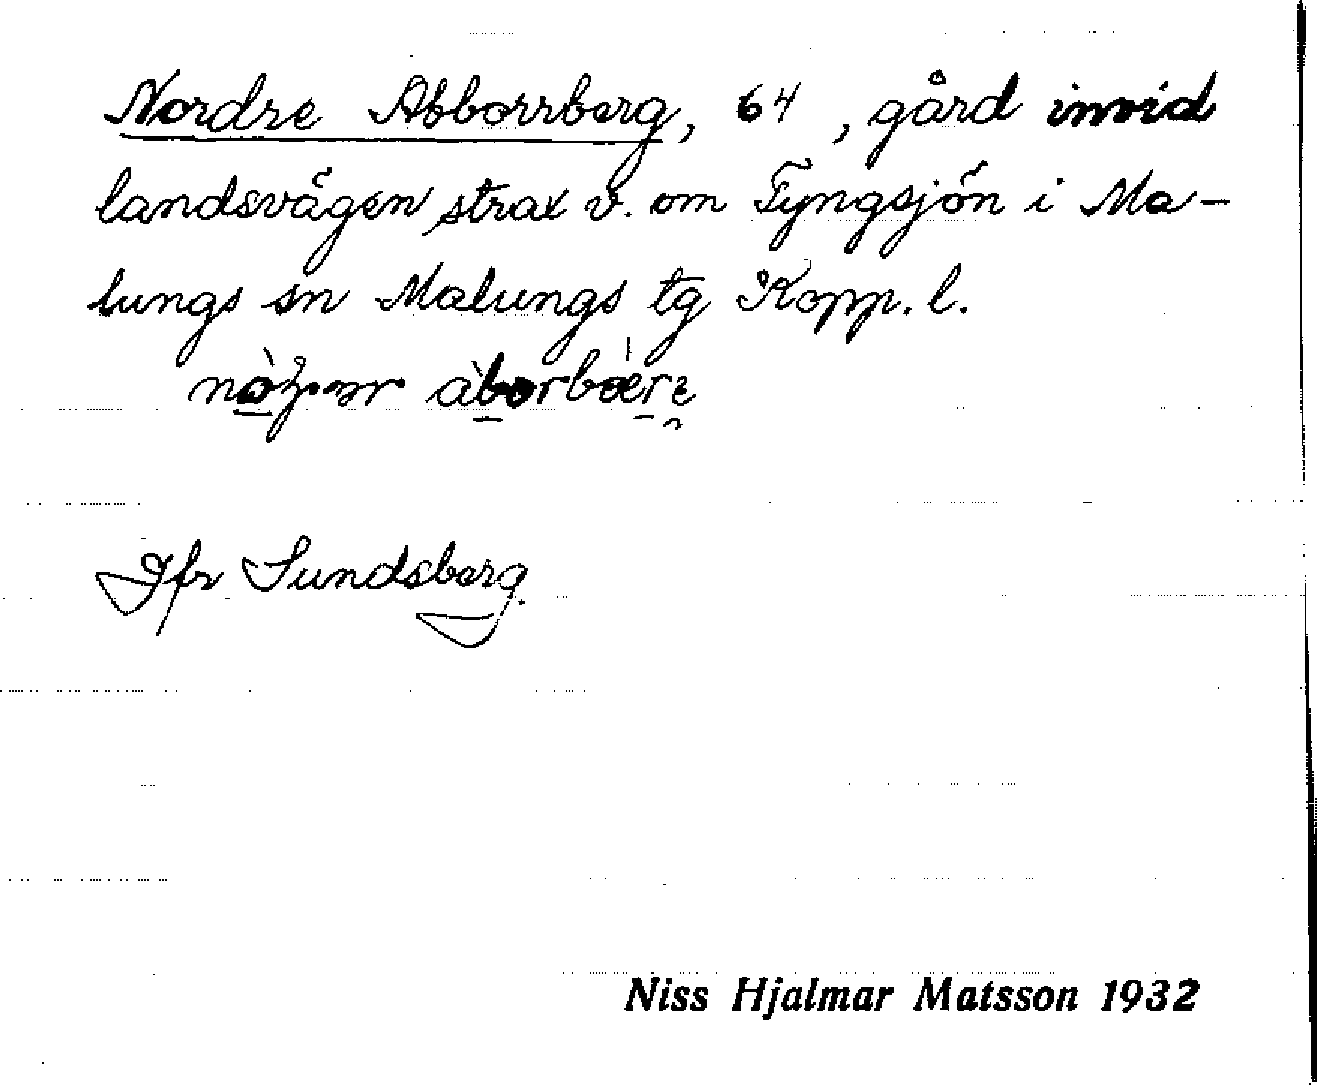 Nordre Abborrberg, 64, gård invid
landsvägen strax v. om Tyngsjön i Ma-
lungs sn Malungs tg Kopp. l.
Jfr Sundsberg.
Niss Hjalmar Matsson 1932